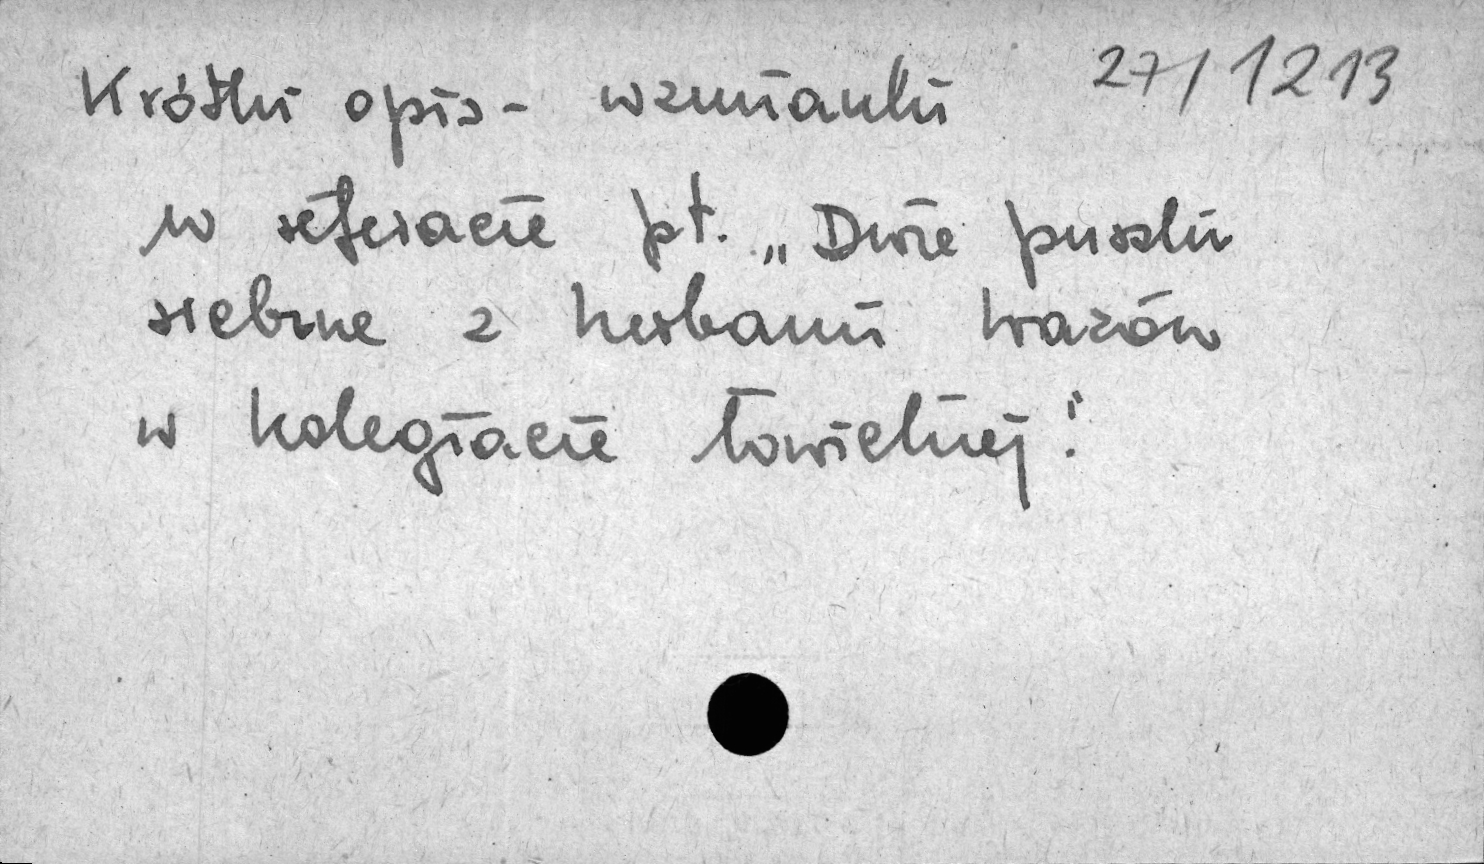 27/1213
Krótki opis - wzmianki
w referacie pt. „Dwie puszki
srebrne z herbami
w kolegiacie łowickiej."